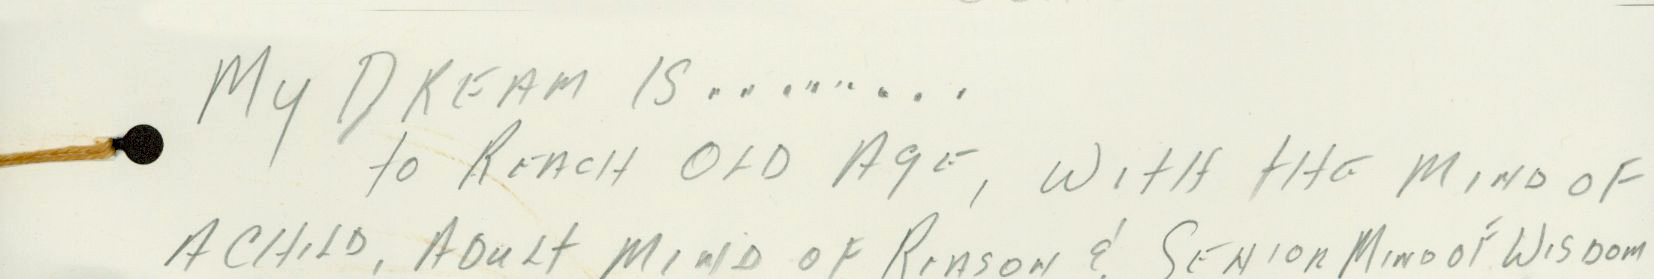 My DREAM IS.........
to REACH OLD AGE, WITH tHE MIND OF
A CHILD, ADULT MIND OF REASON & SENIOR MIND OF WISDOM